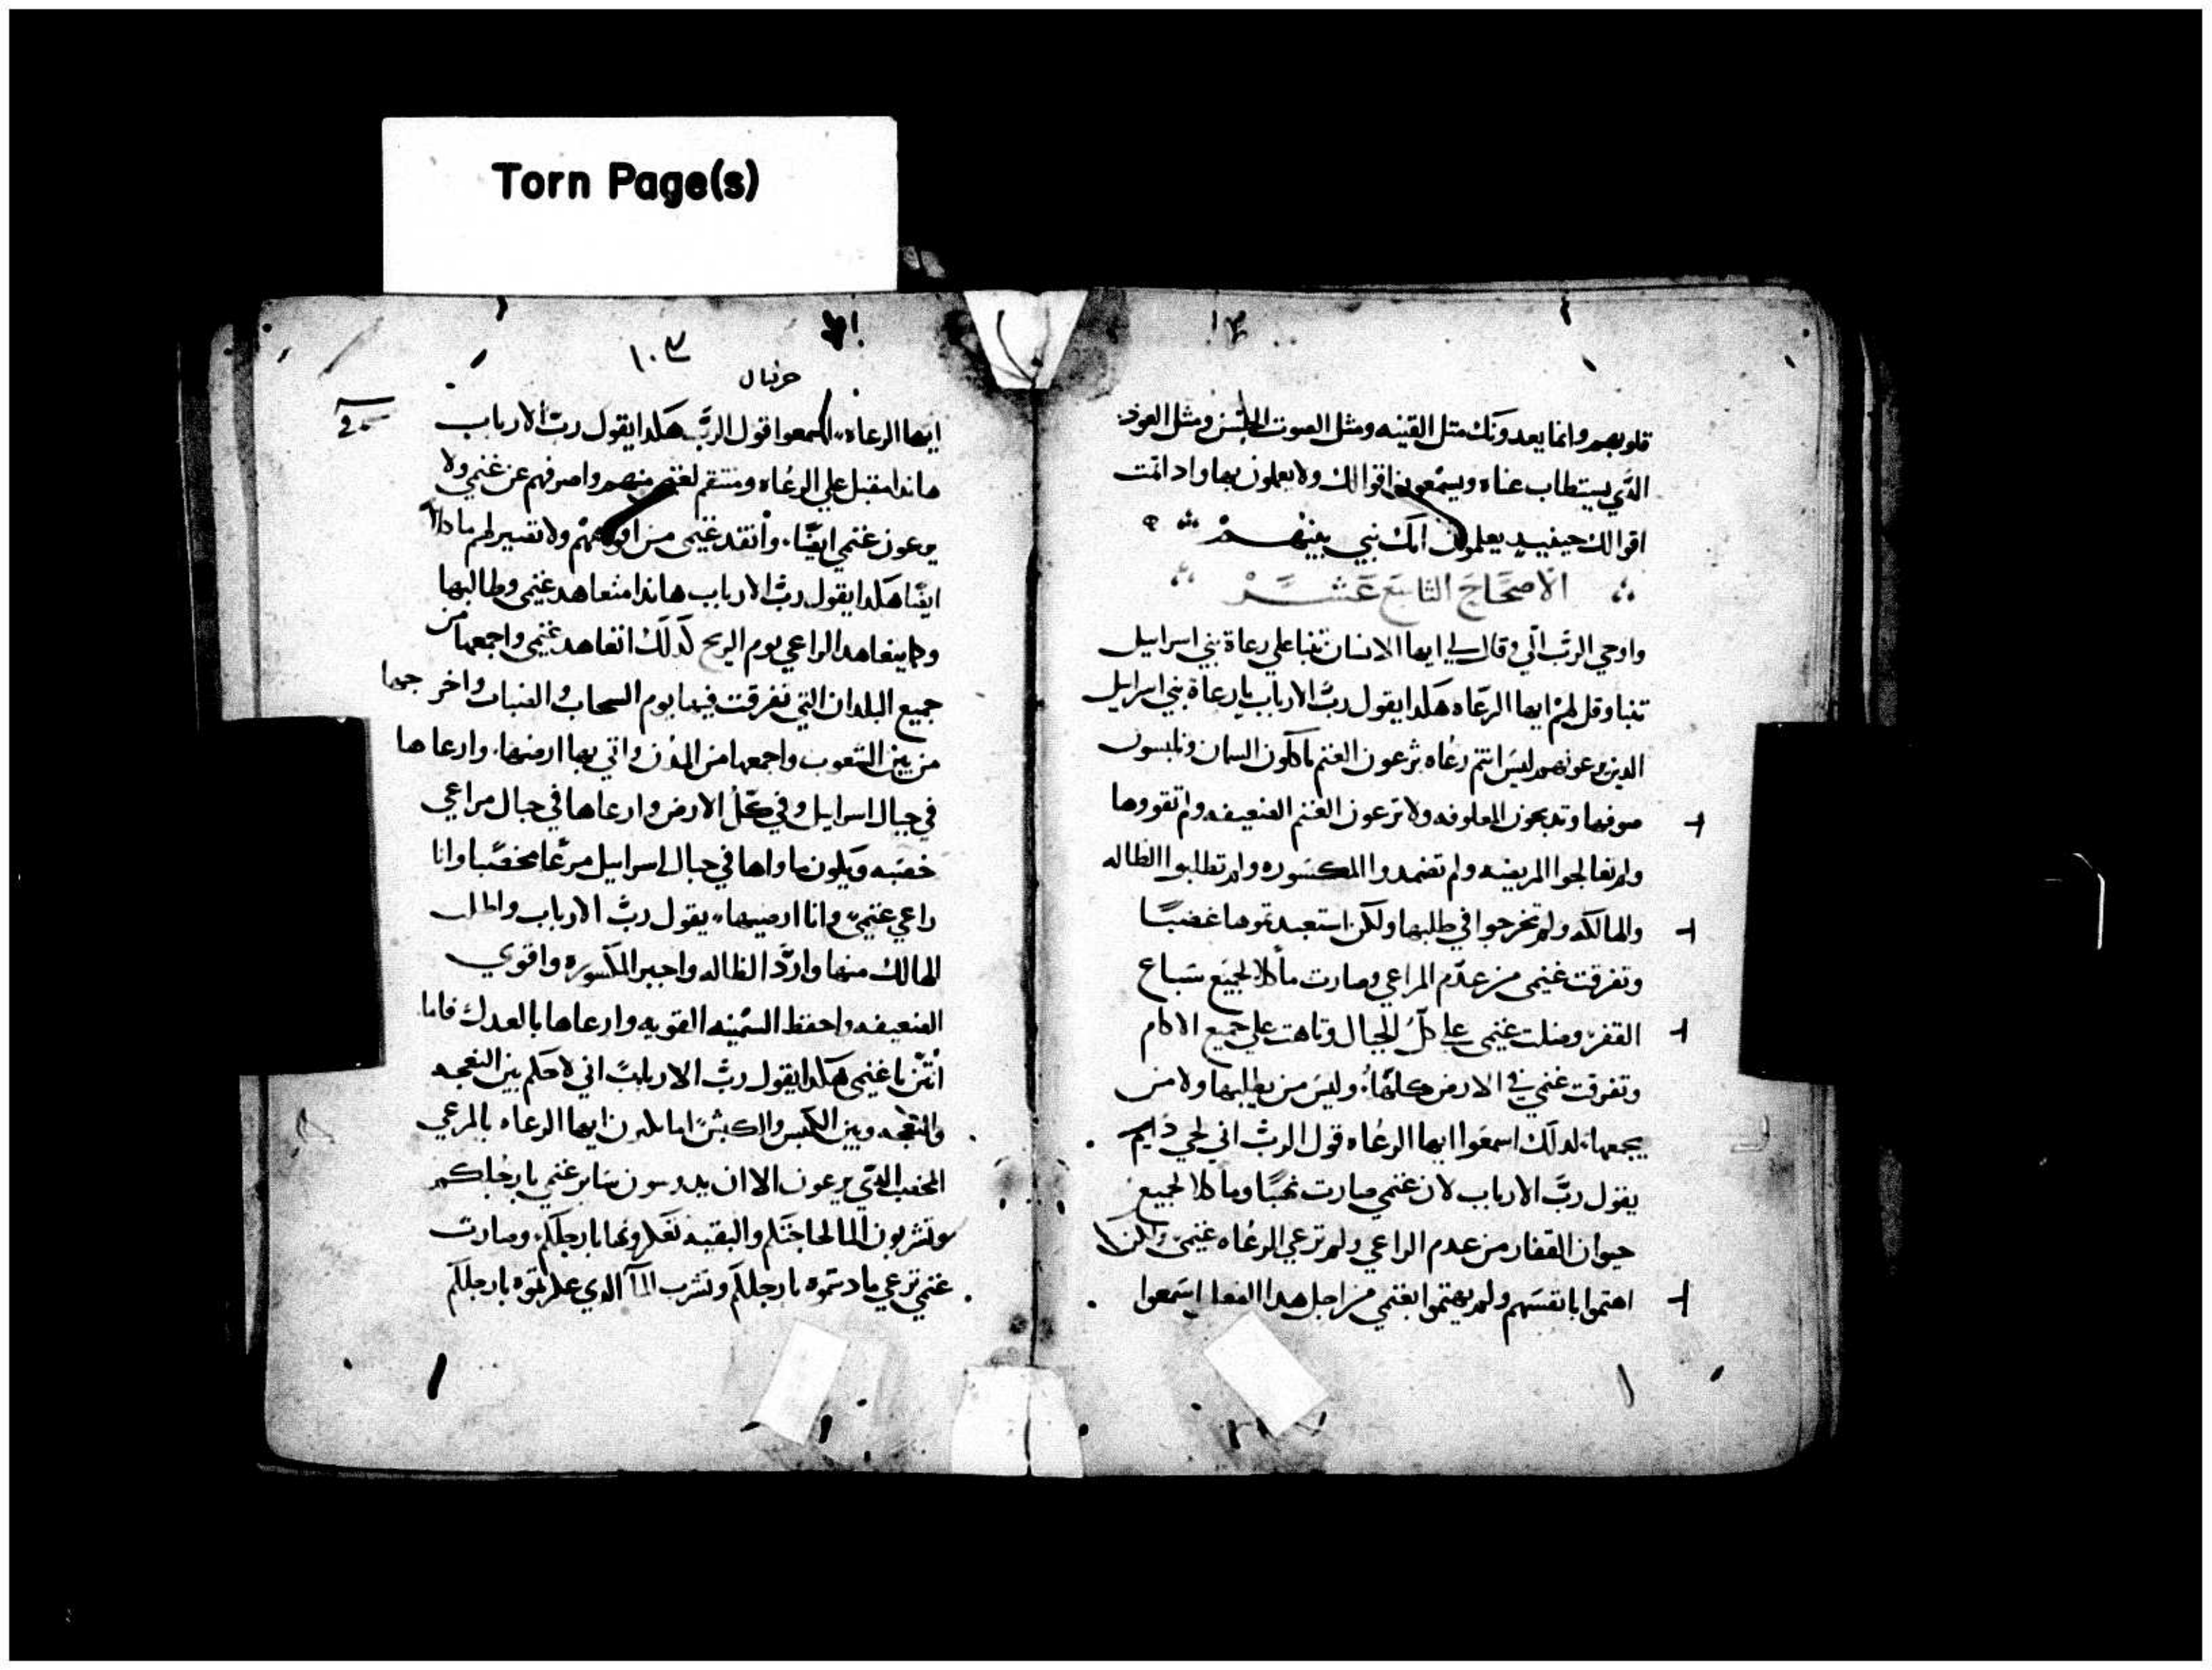 Torn Page(s)
قلوبهم وانما يعدونك متل القينه ومثل الصوت الحسن ومثل العود
الدي يستطاب عناه ويسمعون اقوالك ولا يعملون بها وادا تمت
اقوالك حينيد يعلمون انك نبي بينهم
الاصحاح التاسع عشر
واوحي الرب الي وقال لي ايها الانسان تنبا علي رعاة بني اسراييل
تنبا وقل لهم ايها الرعاه هكدا يقول رب الارباب يا رعاة بني اسراييل
الدين يرعونهم ليس انتم رعاه ترعون الغنم تاكلون السمان وتلبسون
صوفها وتدبحون المعلوفه ولا ترعون الغنم الضعيفه ولم تقووها
ولم تعالجوا المريضه ولم تضمدوا المكسوره ولم تطلبوا الظاله
والهالكه ولم تخرجوا في طلبها ولكن استعبدتموها غضبًا
وتفرقت غنمي من عدم الراعي وصارت ماكلا لجميع سباع
القفر وضلت غنمي علي كل الجبال وتاهت علي جميع الاكام
وتفرقت غنمي في الارض كلها وليس من يطلبها ولا من
يجمعها لدلك اسمعوا ايها الرعاه قول الرب اني لحي دايم
يقول رب الارباب لان غنمي صارت نهبًا وماكلا لجميع
حيوان القفار من عدم الراعي ولم ترعي الرعاه غنمي ولكن
اهتموا بانفسهم ولم يهتموا بغنمي من اجل هدا الفعل اسمعوا
١٠٣
حزقيال
ايها الرعاه اسمعوا قول الرب هكدا يقول رب الارباب
هاندا مقبل علي الرعاه ومنتقم لغنمي منهم واصرفهم عن غنمي ولا
يرعون غنمي ايضًا وانقد غنمي من افواههم ولا تصير لهم ماكلاً
ايضًا هكدا يقول رب الارباب هاندا متعاهد غنمي وطالبها
وكما يتعاهد الراعي يوم الريح كدلك اتعاهد غنمي واجمعها من
جميع البلدان التي تفرقت فيها يوم السحاب والضباب واخرجها
من بين الشعوب واجمعها من المدن واتي بها ارضها وارعاها
في جبال اسراييل وفي كل الارض وارعاها في جبال مراعي
خصبه ويكون ماواها في جبال اسراييل مرعا مخصبا وانا
راعي غنمي وانا ارضيها يقول رب الارباب واطلب
الهالك منها وارد الظاله واجبر المكسوره واقوي
الضعيفه واحفظ السمينه القويه وارعاها بالعدل فاما
انتن يا غنمي هكدا يقول رب الارباب اني لاحكم بين النعجه
والنعجه وبين الكبش والكبش اما تكتفون ايها الرعاه بالمرعي
المخصب الدي يرعون الا ان يدوسون ساير غنمي بارجلكم
وتشربون الما لحاجتكم والبقيه تعكرونها بارجلكم وصارت
غنمي ترعي ما دستموه بارجلكم وتشرب المآ الدي عكرتموه بارجلكم